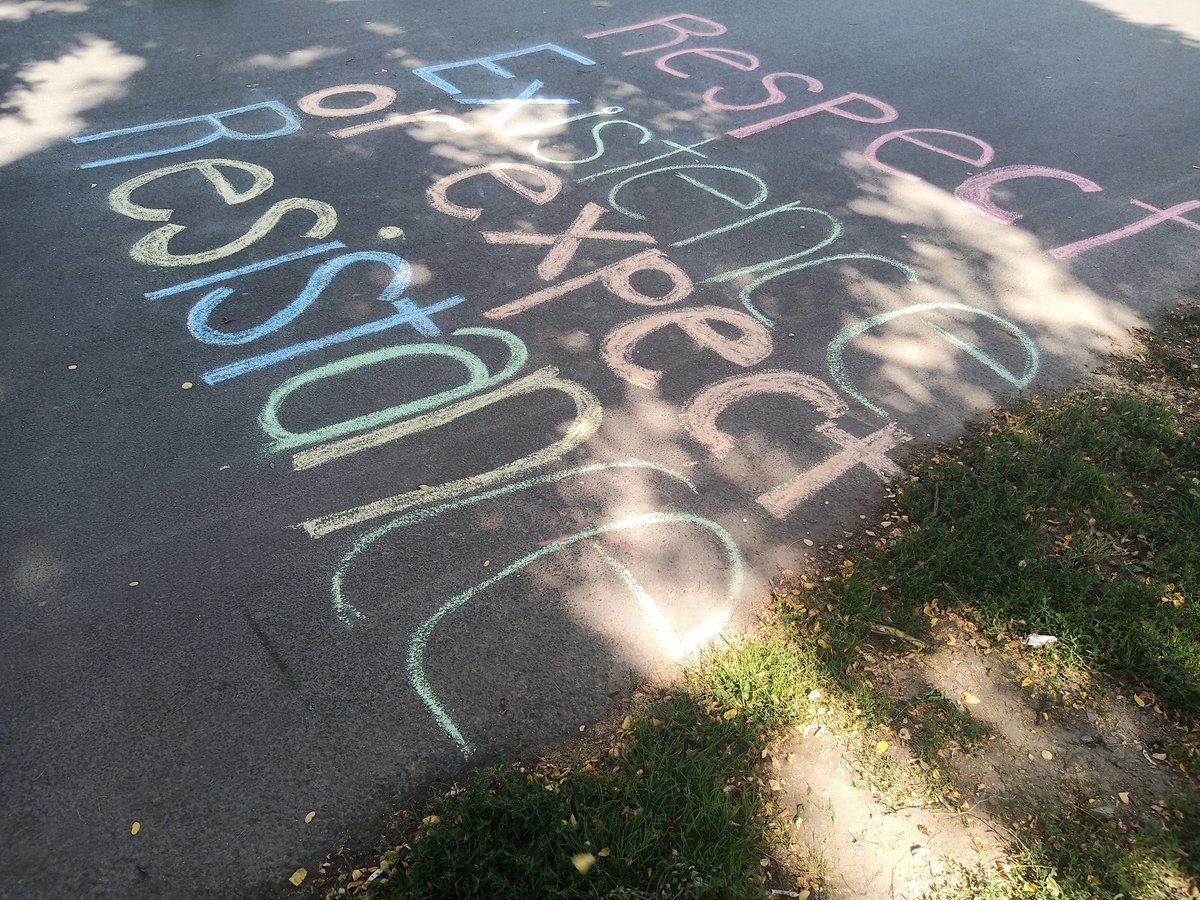 Respect
Existence
or expect
Resistance